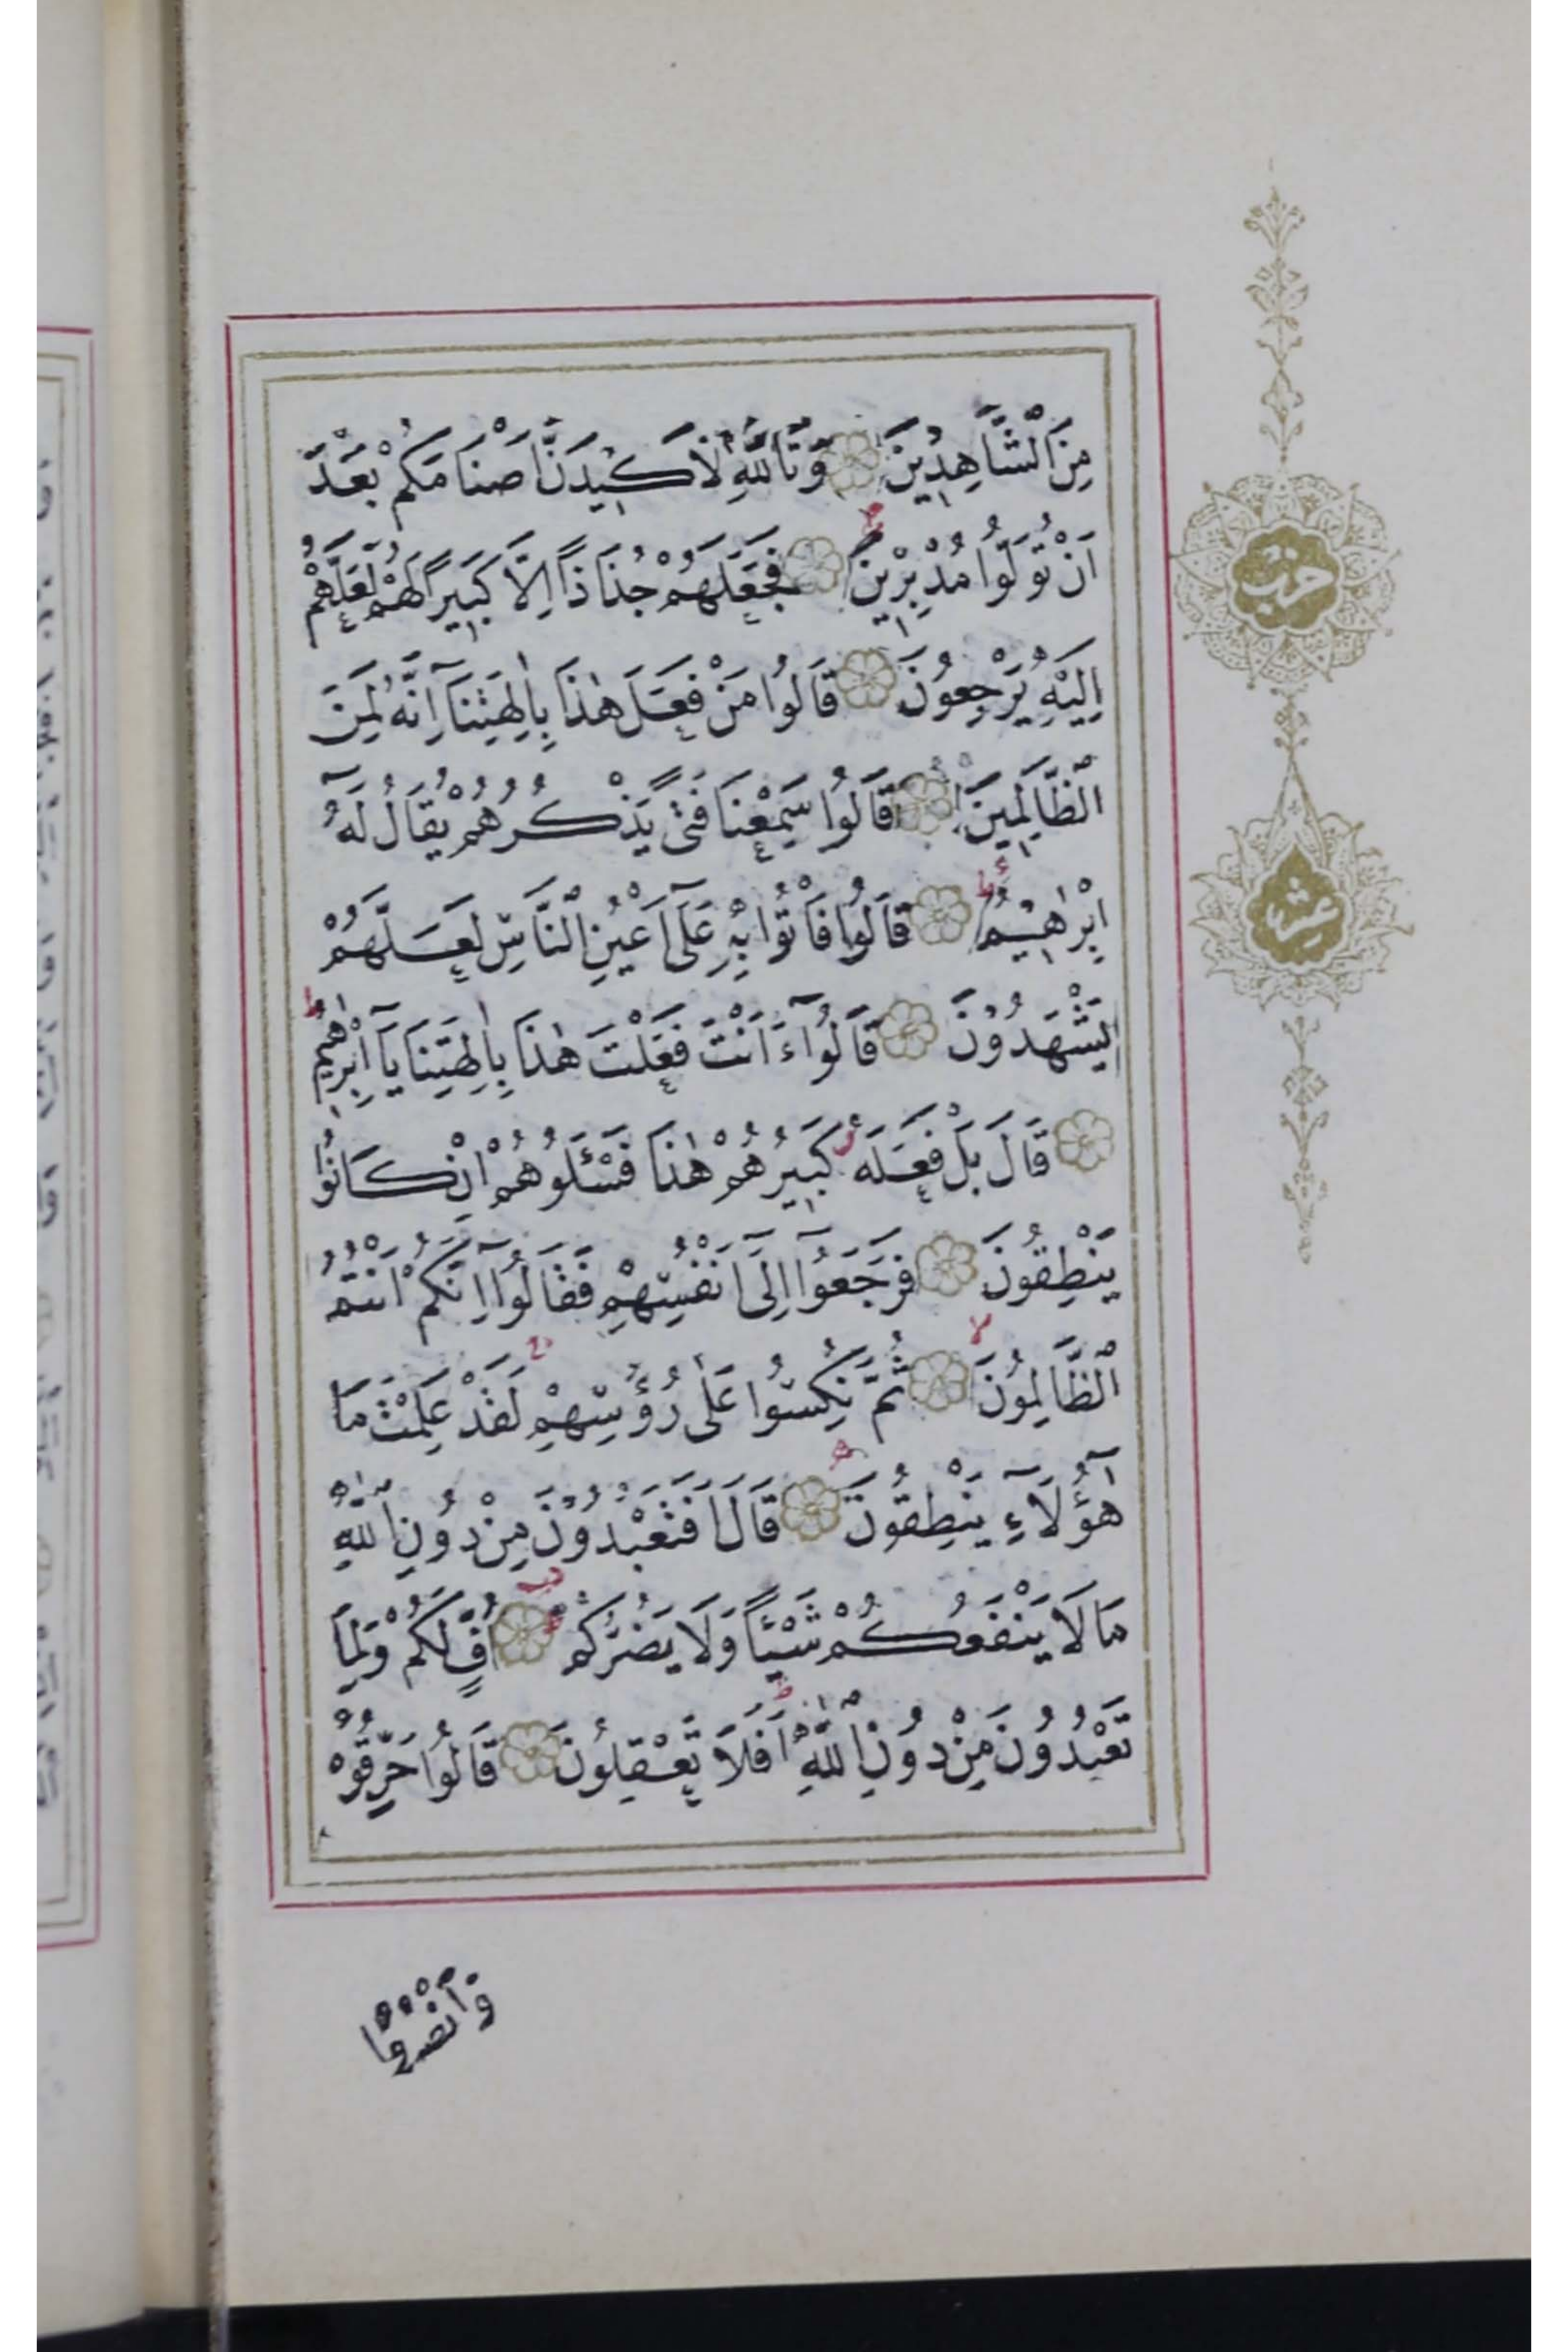 مِنَ الشَّاهِدِينَ وَتَاللّٰهِ لَاَكِيدَنَّ اَصْنَامَكُمْ بَعْدَ
اَنْ تُوَلُّوا مُدْبِرِينَ فَجَعَلَهُمْ جُذَاذًا اِلَّا كَبِيرًا لَهُمْ لَعَلَّهُمْ
اِلَيْهِ يَرْجِعُونَ قَالُوا مَنْ فَعَلَ هٰذَا بِاٰلِهَتِنَآ اِنَّهُ لَمِنَ
الظَّالِمِينَ قَالُوا سَمِعْنَا فَتًى يَذْكُرُهُمْ يُقَالُ لَهُٓ
اِبْرٰهِيمُ قَالُوا فَأْتُوا بِهِ عَلٰٓى اَعْيُنِ النَّاسِ لَعَلَّهُمْ
يَشْهَدُونَ قَالُوٓا ءَاَنْتَ فَعَلْتَ هٰذَا بِاٰلِهَتِنَا يَآ اِبْرٰهِيمُ
قَالَ بَلْ فَعَلَهُ كَبِيرُهُمْ هٰذَا فَسْئَلُوهُمْ اِنْ كَانُوا
يَنْطِقُونَ فَرَجَعُوٓا اِلٰٓى اَنْفُسِهِمْ فَقَالُوٓا اِنَّكُمْ اَنْتُمُ
الظَّالِمُونَ ثُمَّ نُكِسُوا عَلٰى رُؤُسِهِمْ لَقَدْ عَلِمْتَ مَا
هٰٓؤُلَآءِ يَنْطِقُونَ قَالَ اَفَتَعْبُدُونَ مِنْ دُونِ اللّٰهِ
مَا لَا يَنْفَعُكُمْ شَيْئًا وَلَا يَضُرُّكُمْ اُفٍّ لَكُمْ وَلِمَا
تَعْبُدُونَ مِنْ دُونِ اللّٰهِ اَفَلَا تَعْقِلُونَ قَالُوا حَرِّقُوهُ
وَانْصُرُوا
حزب
عشر